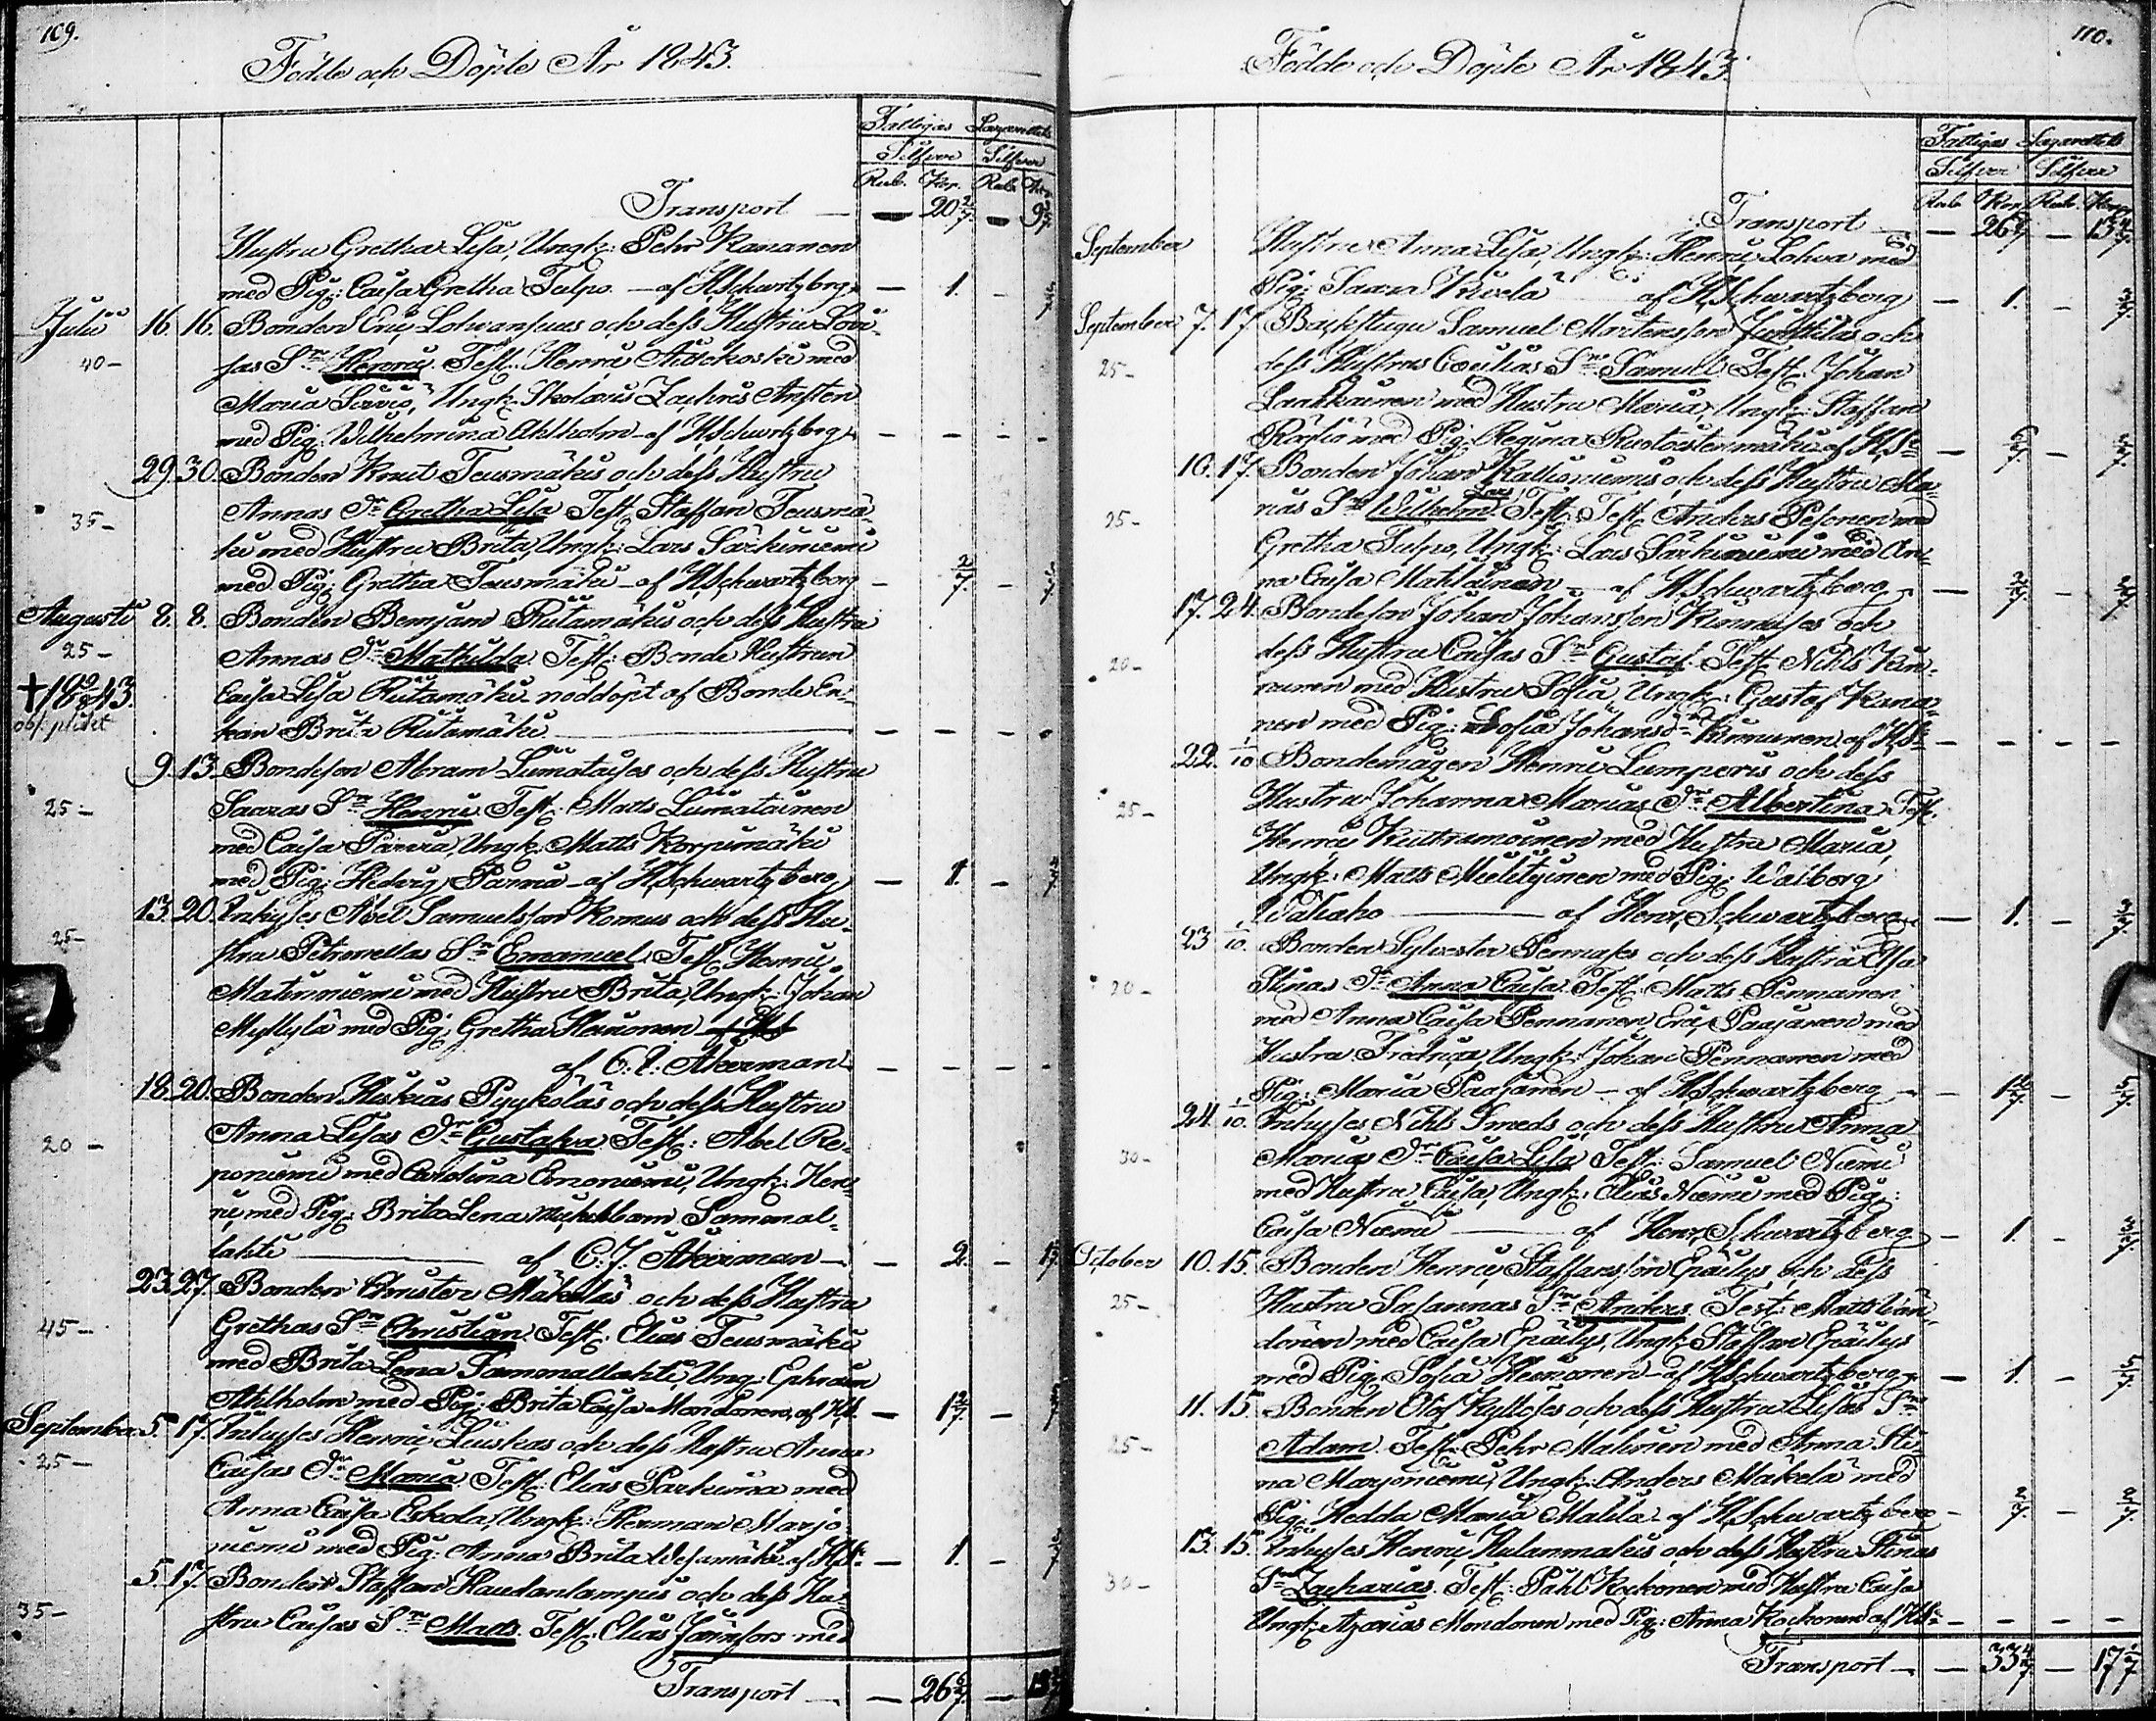 109.
Födde och Döpte År 1843.
Fattigas Lazarettets
Silfver Silfver
Rub. Kop. Rub. Kop.
Transport — — 20 2/7 — 9 5/7
Hustru Gretha Lisa, Ungk: Pehr Kananen
med Pig: Caisa Gretha Tulpo — af HSchwartzberg — 1. —
Julii 16. 16. Bonden Eric Lohvansuus och dess Hustru Lovi-
40 — sas Sn Henric. Test. Henric
Maria Ungk. Zachris
med Pig. Wilhelmina Ahlholm — af HSchwartzberg — — — —
29. 30. Bonden Knut Teusmäkis och dess Hustru
35 — Annas Dr Gretha Lisa Test. Staffan Teusmä-
ki med Hustru Brita, Ungk: Lars Särkiniemi
med Pig: Gretha Teusmäki — af HSchwartzberg — 2/7. —
Augusti 8. 8. Bonden Benjam Riitamäkis och dess Hustru
25 — Annas Dr Mathilda. Test: Bonde Hustrun
Caisa Lisa Riitamäki nöddöpt af Bonde En-
kan Brita Riitamäki — — — —
9. 13. Bondeson Abram Liimataises och dess Hustru
25 — Saaras Sn Henric Test: Matts Liimatainen
med Caisa Parvia, Ungk: Matts Korpimäki
med Pig: Hedvig Parvia — af HSchwartzberg — 1. —
13. 20. Inhyses Abel Samuelsson Komus och dess Hu-
25 — stru Petronellas Sn Emanuel, Test. Henric
Matinniemi med Hustru Brita, Ungk: Johan
Myllylä med Pig: Gretha Heinonen
af C. J. Akerman — — — —
18. 20. Bonden Hiskias Pyykölas och dess Hustru
20 — Anna Lisas Dr Gustafva Test: Abel Re-
poniemi med Carolina Emoniemi, Ungk: Hen-
ric med Pig: Brita Lena Sammal-
lahti — af C. J. Akerman — — 2. —
23. 27. Bonden Christer Mäkeläs och dess Hustru
45 — Grethas Sn Christian Test: Elias Teusmäki
med Brita Lena Sammallahti, Ung: Ephraim
Ahlholm med Pig: Brita Caisa Mondonen, af HS. — 1 2/7. —
September 5. 17. Inhyses Henric Leiskas och dess Hustru Anna
25 — Caisas Dr Maria Test: Elias Parkuma med
Anna Caisa Eskola, Ungk: Herman Marjo-
niemi med Pig: Anna Brita af HS. — 1. —
5. 17. Bonden Staffan Haudanlampis och dess Hu-
35 — stru Caisas Sn Matts. Test: Elias Järnfors med
Transport — — 26 6/7. —
110.
Födde och Döpte År 1843.
Fattigas Lazarettets
Silfver Silfver
Rub. Kop. Rub. Kop.
Transport — 26 6/7 — 13 4/7
September Hustru Anna Lisa, Ungk: Henric Lohva med
Pig: Saara Kivelä af HSchwartzberg — 1. —
September 7. 17. Backstugu Samuel Mårtensson och
25 — dess Hustrus Cecilias Sn Samuel Test. Johan
Laukkainen med Hustru Maria, Ungk: Staffan
med Pig: Regina af HS. — 2/7. —
10. 17. Bonden Johan Kallioniemis och dess Hustru Ma-
Lars
25 — rias Sn Wilhelm. Test. Test. Anders Pesonen med
Gretha Tulpo, Ungk: Lars Särkiniemi med An-
na Caisa Mahlainen — af HSchwartzberg — 2/7. —
17. 24. Bondeson Johan Johansson Kinnuses och
20 — dess Hustru Caisas Sn Gustaf. Test. Nikls Kin-
nunen med Hustru Sofia, Ungk: Gustaf Kana-
nen med Pig: Sofia Johansdr Kinnunen, af HS. — — — —
22. 1/10 Bondemågen Henric Lumperis och dess
25 — Hustru Johanna Marias Dr Albertina Test.
Henric Kuttramoinen med Hustru Maria,
Ungk: Matts Mielityinen med Pig: Walborg
Waliaho — af Henr. Schwartzberg — 1. —
23 1/10. Bonden Sylvester Pennases och dess Hustru Elsa
20 — Stinas Dr Anna Caisa. Test: Matts Pennanen
med Anna Caisa Pennanen, Eric Paajanen med
Hustru Fredrica, Ungk: Johan Pennanen med
Pig: Maria Paajanen — af HSchwartzberg — 1 2/7. —
24. 1/10. Inhyses Nikls Smeds och dess Hustru Anna
30 — Marias Dr Caisa Lisa Test: Samuel Niemi
med Hustru Caisa, Ungk: Elias Niemi med Pig:
Caisa Niemi — af Henr. Schwartzberg — 1. —
October 10. 15. Bonden Henric Staffansson Epäilys och dess
25 — Hustru Susannas Sn Anders. Test: Matts
med Caisa Epäilys, Ungk: Staffan Epäilys
med Pig: Sofia Heinonen — af HSchwartzberg — 1. —
11. 15. Bonden Olof Kyllöses och dess Hustru Lisas Sn
25 — Adam. Test: Pehr Malinen med Anna Sti-
na Marjoniemi, Ungk: Anders Mäkelä med
Pig: Hedda Maria Malila af HSchwartzberg — 2/7. —
13. 15. Inhyses Henric Hulanmäkis och dess Hustru Stinas
30 — Sn Zacharias. Test: Påhl Kockonen med Hustru Caisa
Ungk: Azarias Mondonen med Pig: Anna Kockonen af HS. — — — —
Transport — — 33 4/7 — 17